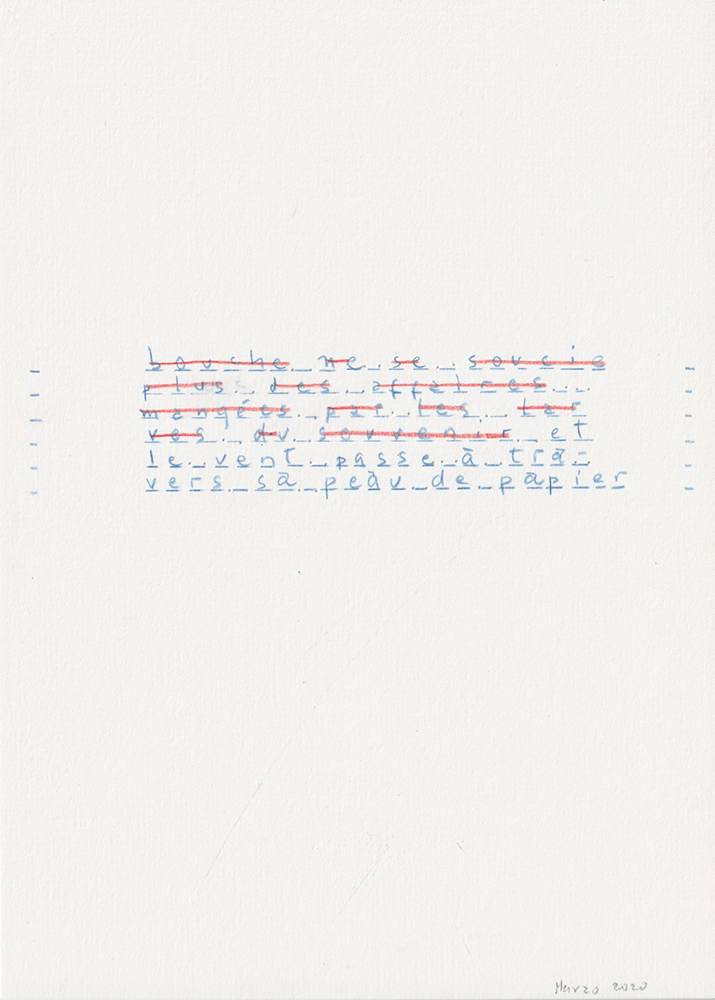 bouche ne se soucie
plus des affaires
mangées par les lar
ves du souvenir et
le vent passe à tra-
vers sa peau de papier
Marzo 2020